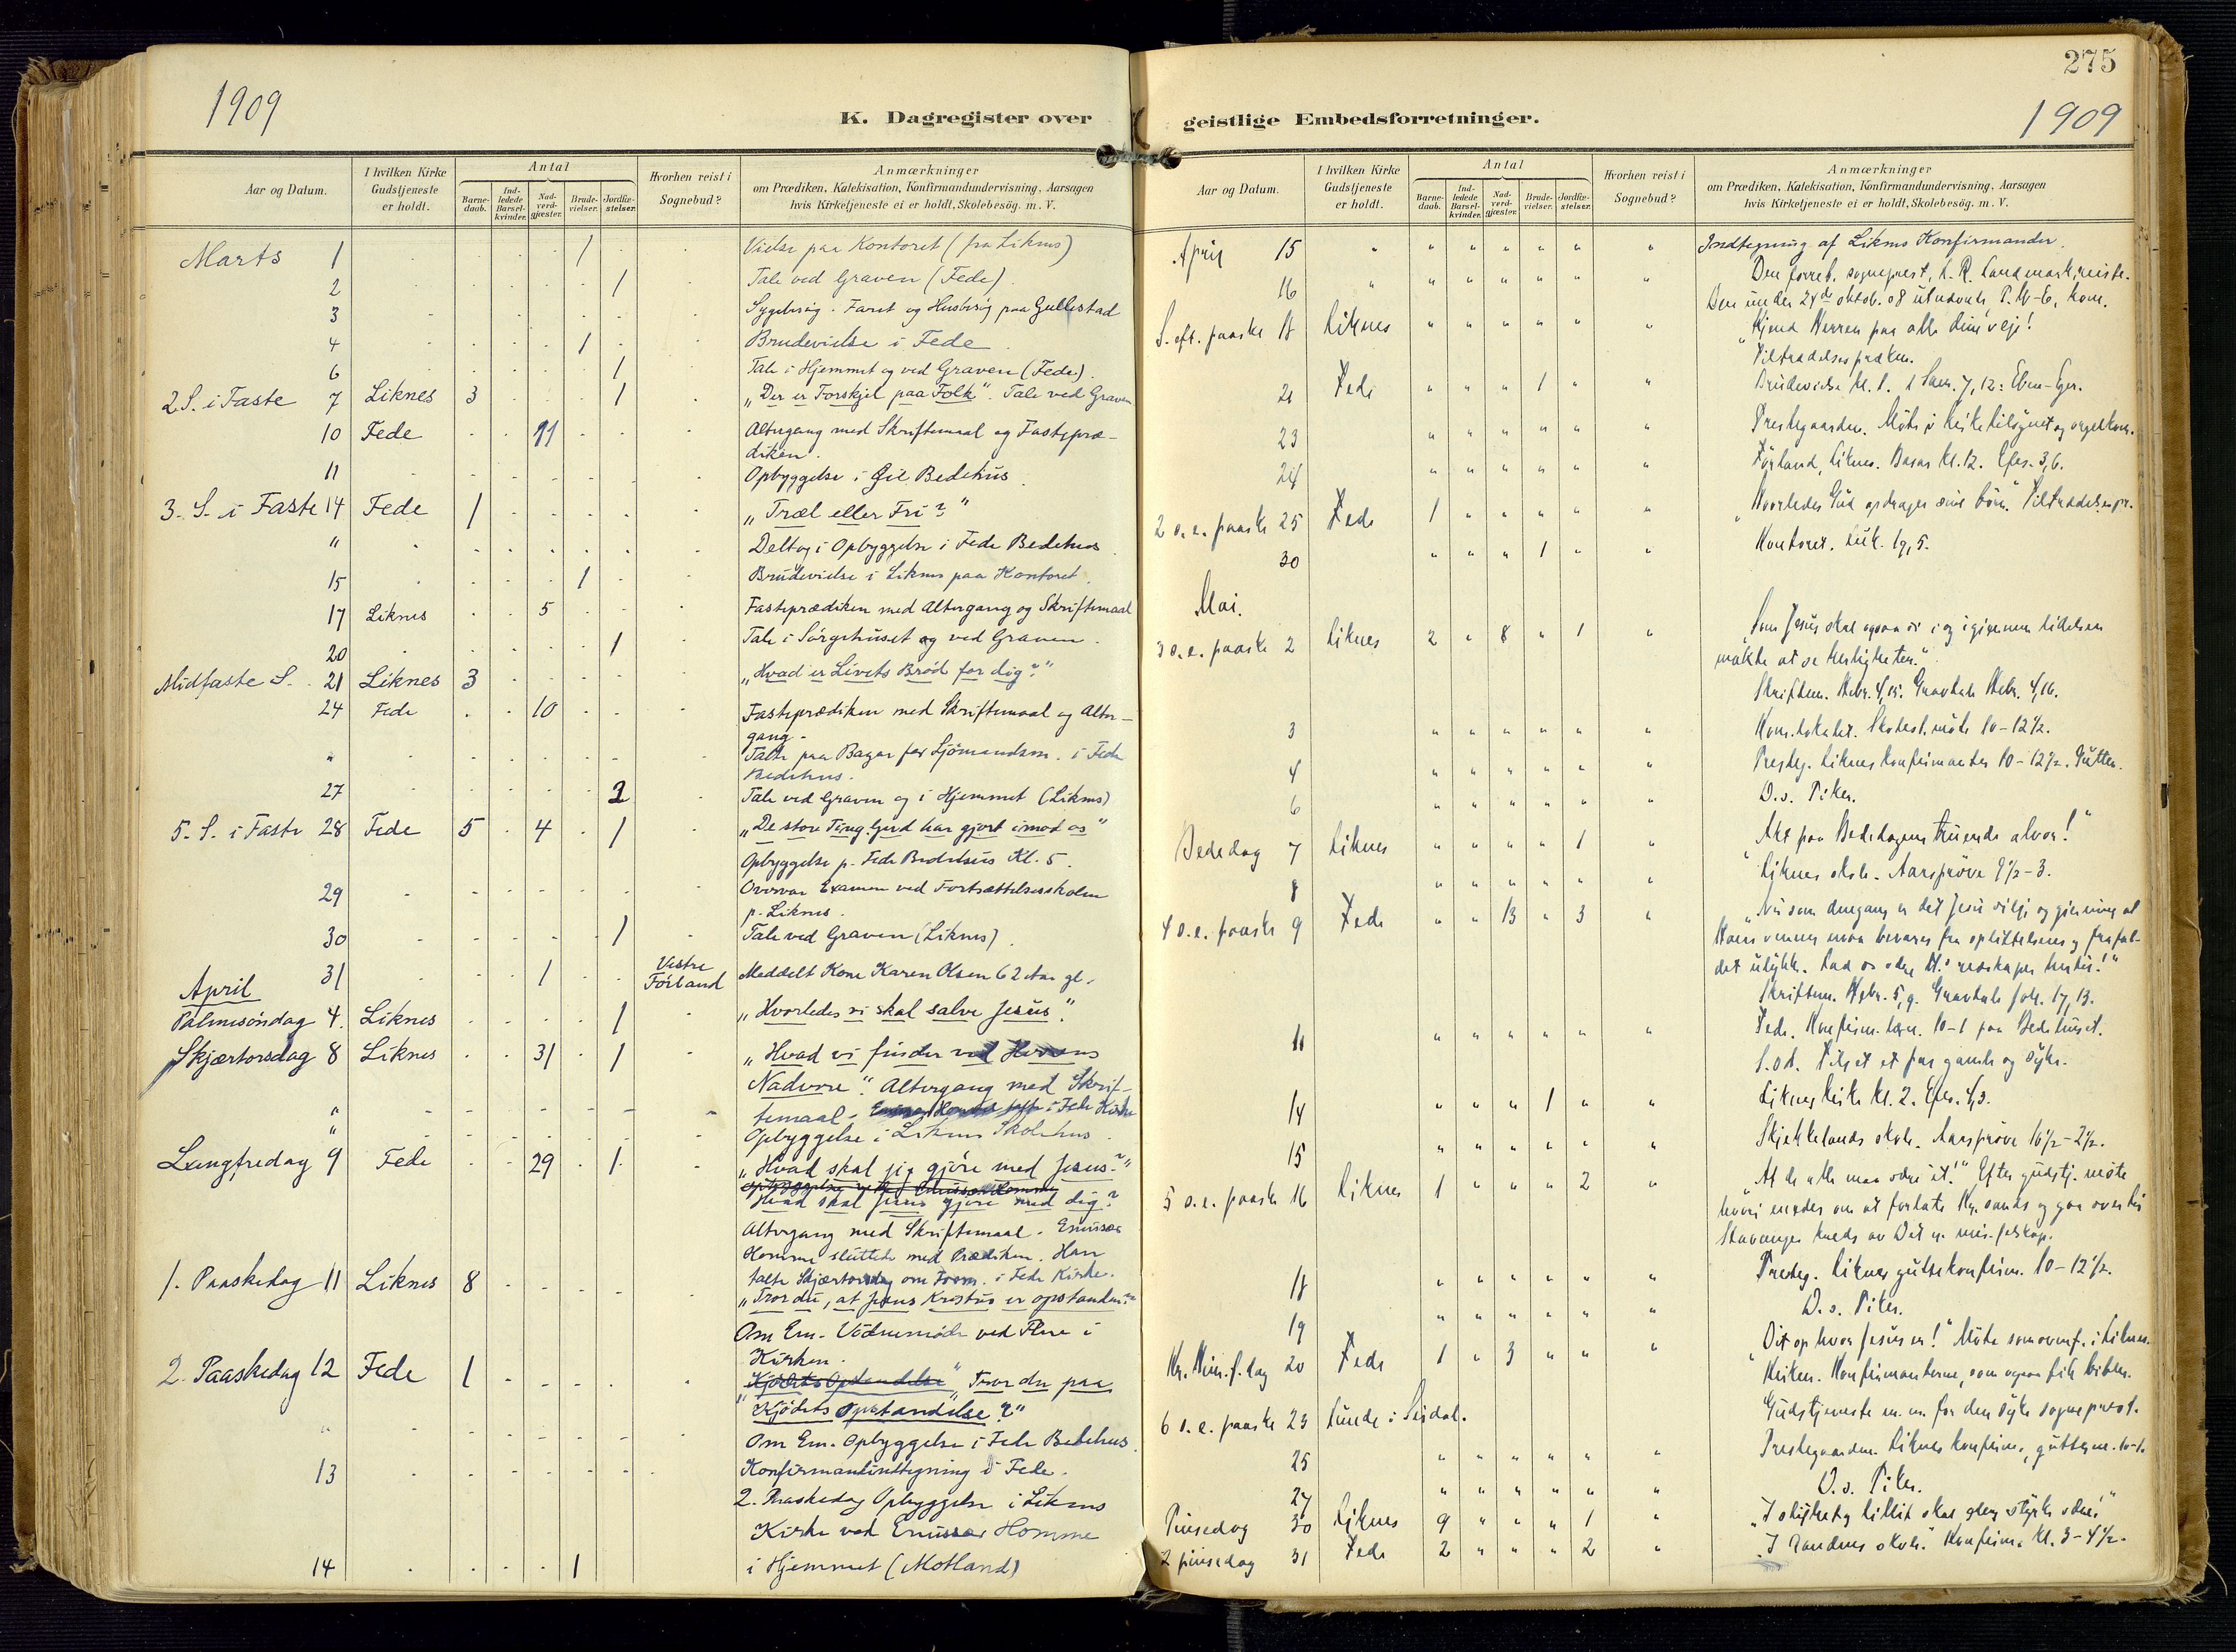 1909
K. Dagregister over
Aar og Datum.
I hvilken Kirke
Gudstjeneste
er holdt.
Antal
Barne-
daab.
Ind-
ledede
Barsel-
kvinder.
Nad-
verd-
gjæster.
Brude-
vielser.
Jordfæ-
stelser.
Hvorhen reist i
Sognebud?
Anmærkninger
om Prædiken, Katekisation, Konfirmandundervisning, Aarsagen
hvis Kirketjeneste ei er holdt, Skolebesög. m. V.
Marts 1 1 Vielse paa Kontoret (fra Liknes)
2 1 Tale ved Graven (Fede).
3 Sygebesøg. Faret og Husbesøg paa Gullestad
4 1 Brudevielse i Fede
6 1 Tale i Hjemmet og ved Graven (Fede).
2 S. i Faste 7 Liknes 3 1 „Der er Forskjel paa Folk“. Tale ved Graven
10 Fede 11 Altergang med Skriftemaal og Fastepræ-
diken.
11 Opbyggelse i Bedehus
3. S. i Faste 14 Fede 1 „Træl eller Fri?“
" Deltog i Opbyggelse i Fede Bedehus
15 1 Brudevielse i Liknes paa Kontoret.
17 Liknes 5 Fasteprædiken med Altergang og Skriftemaal
20 1 Tale i Sørgehuset og ved Graven.
Midfaste S. 21 Liknes 3 „Hvad er Livets Brød for dig?“
24 Fede 10 Fasteprædiken med Skriftemaal og Alter-
gang.
" Talte paa Bazar for Sjømandsm. i Fede
Bedehus.
27 2 Tale ved Graven og i Hjemmet (Liknes)
5. S. i Faste 28 Fede 5 4 1 „De store Ting Gud har gjort imod os“
Opbyggelse p. Fede Bedehus Kl. 5.
29 Overvar Examen ved Fortsættelsesskolen
p. Liknes.
30 1 Tale ved Graven (Liknes).
31 1 Vestre
Førland Meddelt Kone Karen Olsen 62 Aar gl.
April
Palmesøndag 4. Liknes 1 „Hvorledes vi skal salve Jesus“.
Skjærtorsdag 8 Liknes 31 1 „Hvad vi finder ved Herrens
Nadvere“. Altergang med Skrif-
temaal. i Fede Kirke
" Opbyggelse i Liknes Skolehus.
Langfredag 9 Fede 29 1 „Hvad skal jeg gjøre med Jesus?“
Hvad skal Jesus gjøre med dig?
Altergang med Skriftemaal. Emissær
Homme sluttede med Prædiken. Han
talte Skjærtorsdag om i Fede Kirke.
1. Paaskedag 11 Liknes 8 „Tror du, at Jesus Kristus er opstanden?“
Om Em. Vidnemøde ved Flere i
Kirken.
2. Paaskedag 12 Fede 1 „Tror du paa
Kjødets Opstandelse?“
Om Em. Opbyggelse i Fede Bedehus.
13 Konfirmandindtegning i Fede.
2. Paaskedag Opbyggelse i Liknes
Kirke ved Emissær Homme
14 1 i Hjemmet (Motland)
275
geistlige Embedsforretninger.
1909
Aar og Datum.
I hvilken Kirke
Gudstjeneste
er holdt.
Antal
Barne-
daab.
Ind-
ledede
Barsel-
kvinder.
Nad-
verd-
gjæster.
Brude-
vielser.
Jordfæ-
stelser.
Hvorhen reist i
Sognebud?
Anmærkninger
om Prædiken, Katekisation, Konfirmandundervisning, Aarsagen
hvis Kirketjeneste ei er holdt, Skolebesög. m. V.
April 15 Indtegning af Liknes Konfirmander.
16 Den forret. sogneprest, L. R. Landmark, reiste.
Den under 24de oktob. 08 utnævnte, P. kom.
S. eft. paaske 18 Liknes „Kjend Herren paa alle dine veje!
Tiltrædelsespræken.
21 Fede 1 Brudevielse kl. 1. 1 Sam. 7,12: Eben-Ezer.
23 Prestegaarden. Møte
24 Førland, Liknes. Basar kl. 12. Efes. 3,6.
2 s. e. paaske 25 Fede 1 „Hvorledes Gud opdrager sine børn.“ Tiltrædelsespr.
30 1 Kontoret. Luk. 19,5.
Mai.
3 s. e. paaske 2 Liknes 2 8 1 „Som Jesus skal ogsaa vi i og igjennem lidelsen
se herligheten.“
Skriftem. Hebr. 4,15. Gravtale Hebr. 4,16.
3 Kom.lokalet. Skolest. møte 10-12½.
4 Presteg. Liknes konfirmanter 10-12½. Gutter.
6 D.s. Piker.
Bededag 7 Liknes 1 „Akt paa Bededagens truende alvor!“
8 Liknes skole. Aarsprøve 9½-3.
4 s. e. paaske 9 Fede 13 3 „Nu som dengang er det Jesu vilje og gjerning at
Hans venner maa bevares fra splittelsens og frafal-
det ulykke. Lad os være H.s redskaper hertil!“
Skriftem. Hebr. 5,9. Gravtale Joh. 17,13.
11 Fede. Konfirm.lærn. 10-1 paa Bedehuset.
S.d. Tilset et par gamle og syke.
14 1 Liknes kirke kl. 2. Efes. 4,3.
15 Skjekkelands skole. Aarsprøve 10½-2½.
5 s. e. paaske 16 Liknes 1 2 „At de alle maa være et!“ Efter gudstj. møte
hvori enedes om at forlate Kr.sands og gaa over til
Stavanger kreds av Det n. mis.selskap.
18 Presteg. Liknes guttekonfirm. 10-12½.
19 D.s. Piker.
Kr. Him.f.dag 20 Fede 1 3 „Dit op hvor Jesus er!“ Møte som ovenf. i Liknes.
Kirken. Konfirmanterne, som ogsaa fik bibler.
6 s. e. paaske 23 Lunde i Sirdal. Gudstjeneste m. m. for den syke sogneprest.
25 Prestegaarden. Liknes konfirm., gutterne 10-1.
27 D.s. Piker.
Pinsedag 30 Liknes 9 1 „I stilhet og tillit skal eders styrke være!“
2 pinsedag 31 Fede 2 2 „I Aandens skole.“ Konfirm. kl. 3-4½.